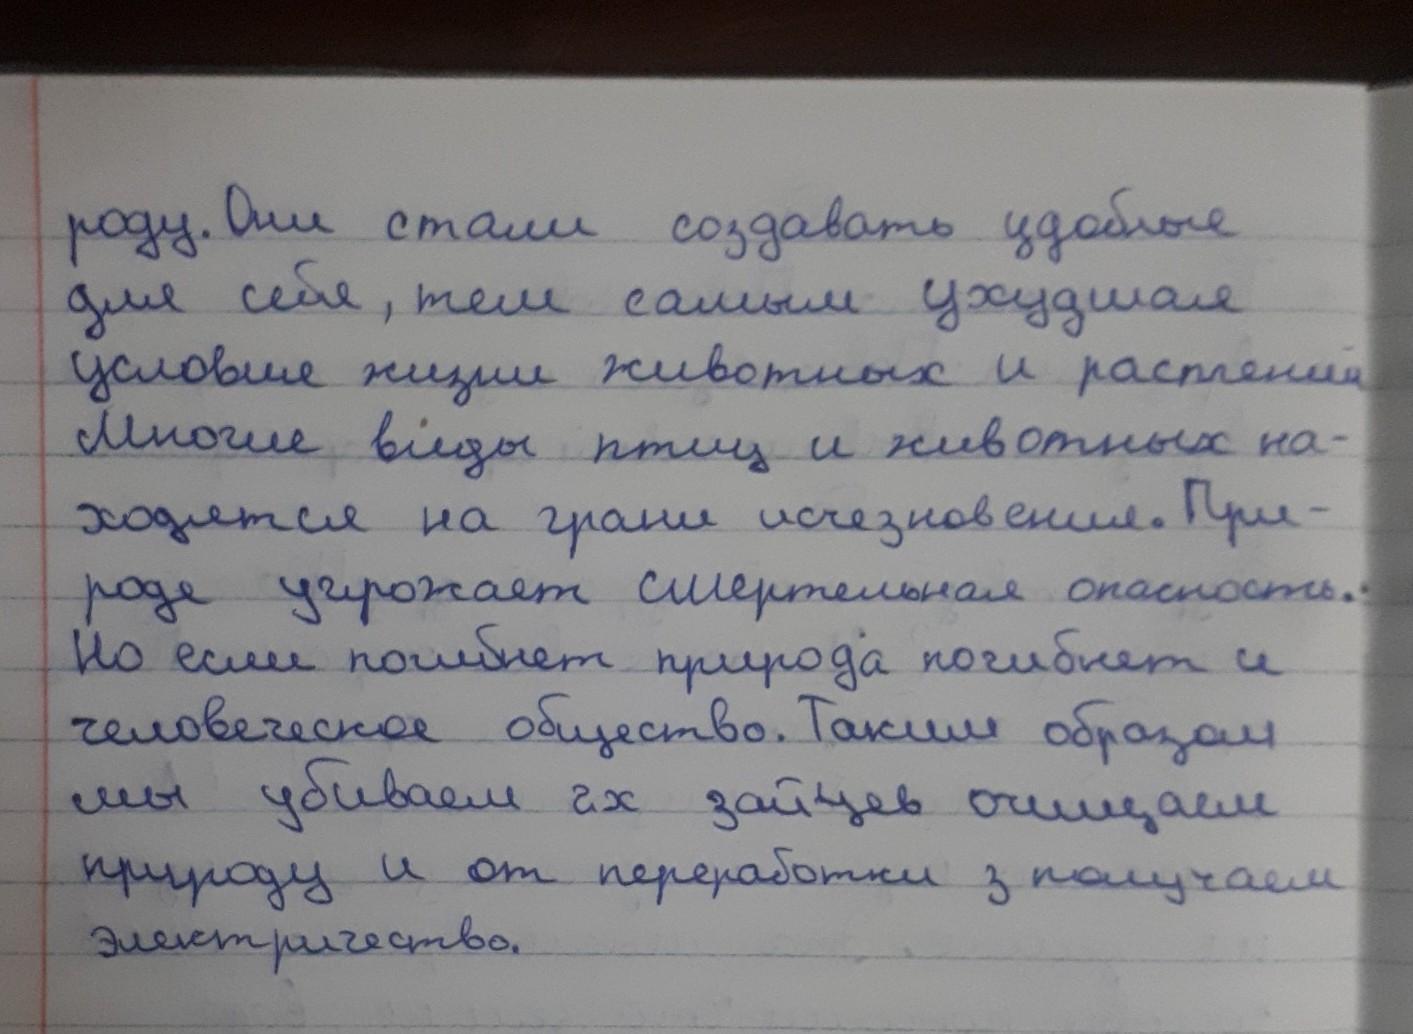 роду. Они стали создавать удобные
для себя, тем самым ухудшая
условие жизни животных и растений
Многие виды птиц и животных на-
ходятся на грани исчезновения. При-
роде угрожает смертельная опасность.
Но если погибнет природа погибнет и
человеческое общество. Таким образом
мы убиваем 2х зайцев очищаем
природу и от переработки з получаем
электричество.